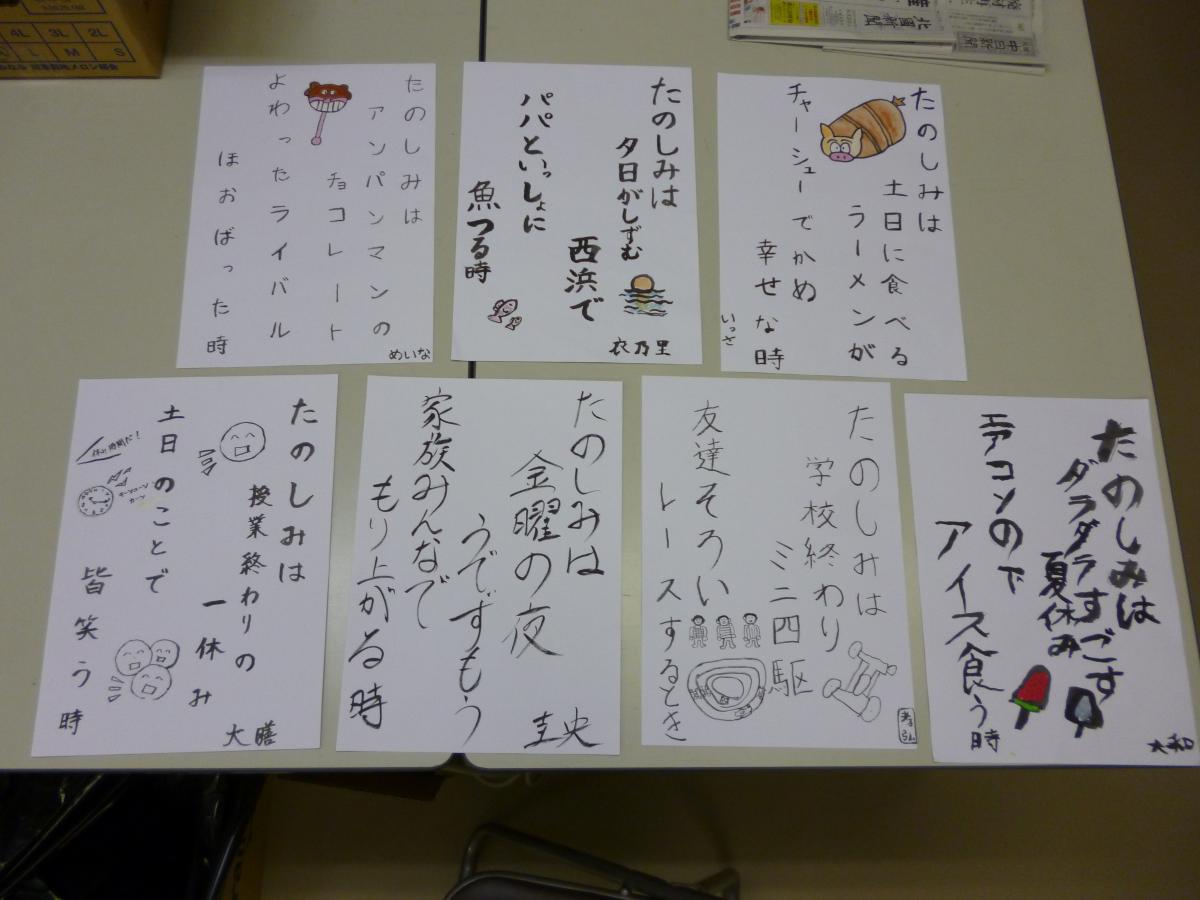 4L 3L 2L
L M S
北國新聞
中日新聞
たのしみは
アンパンマンの
チョコレート
よわったライバル
ほおばった時
めいな
たのしみは
夕日がしずむ
西浜で
パパといっしょに
魚つる時
衣乃里
たのしみは
土日に食べる
ラーメンが
チャーシューでかめ
幸せな時
いっさ
たのしみは
授業終わりの
一休み
土日のことで
皆笑う時
大膳
たのしみは
金曜の夜
うでずもう
家族みんなで
もり上がる時
圭央
たのしみは
学校終わり
ミニ四駆
友達そろい
レースするとき
たのしみは
ダラダラすごす
夏休み
エアコンの下
アイス食う時
大和